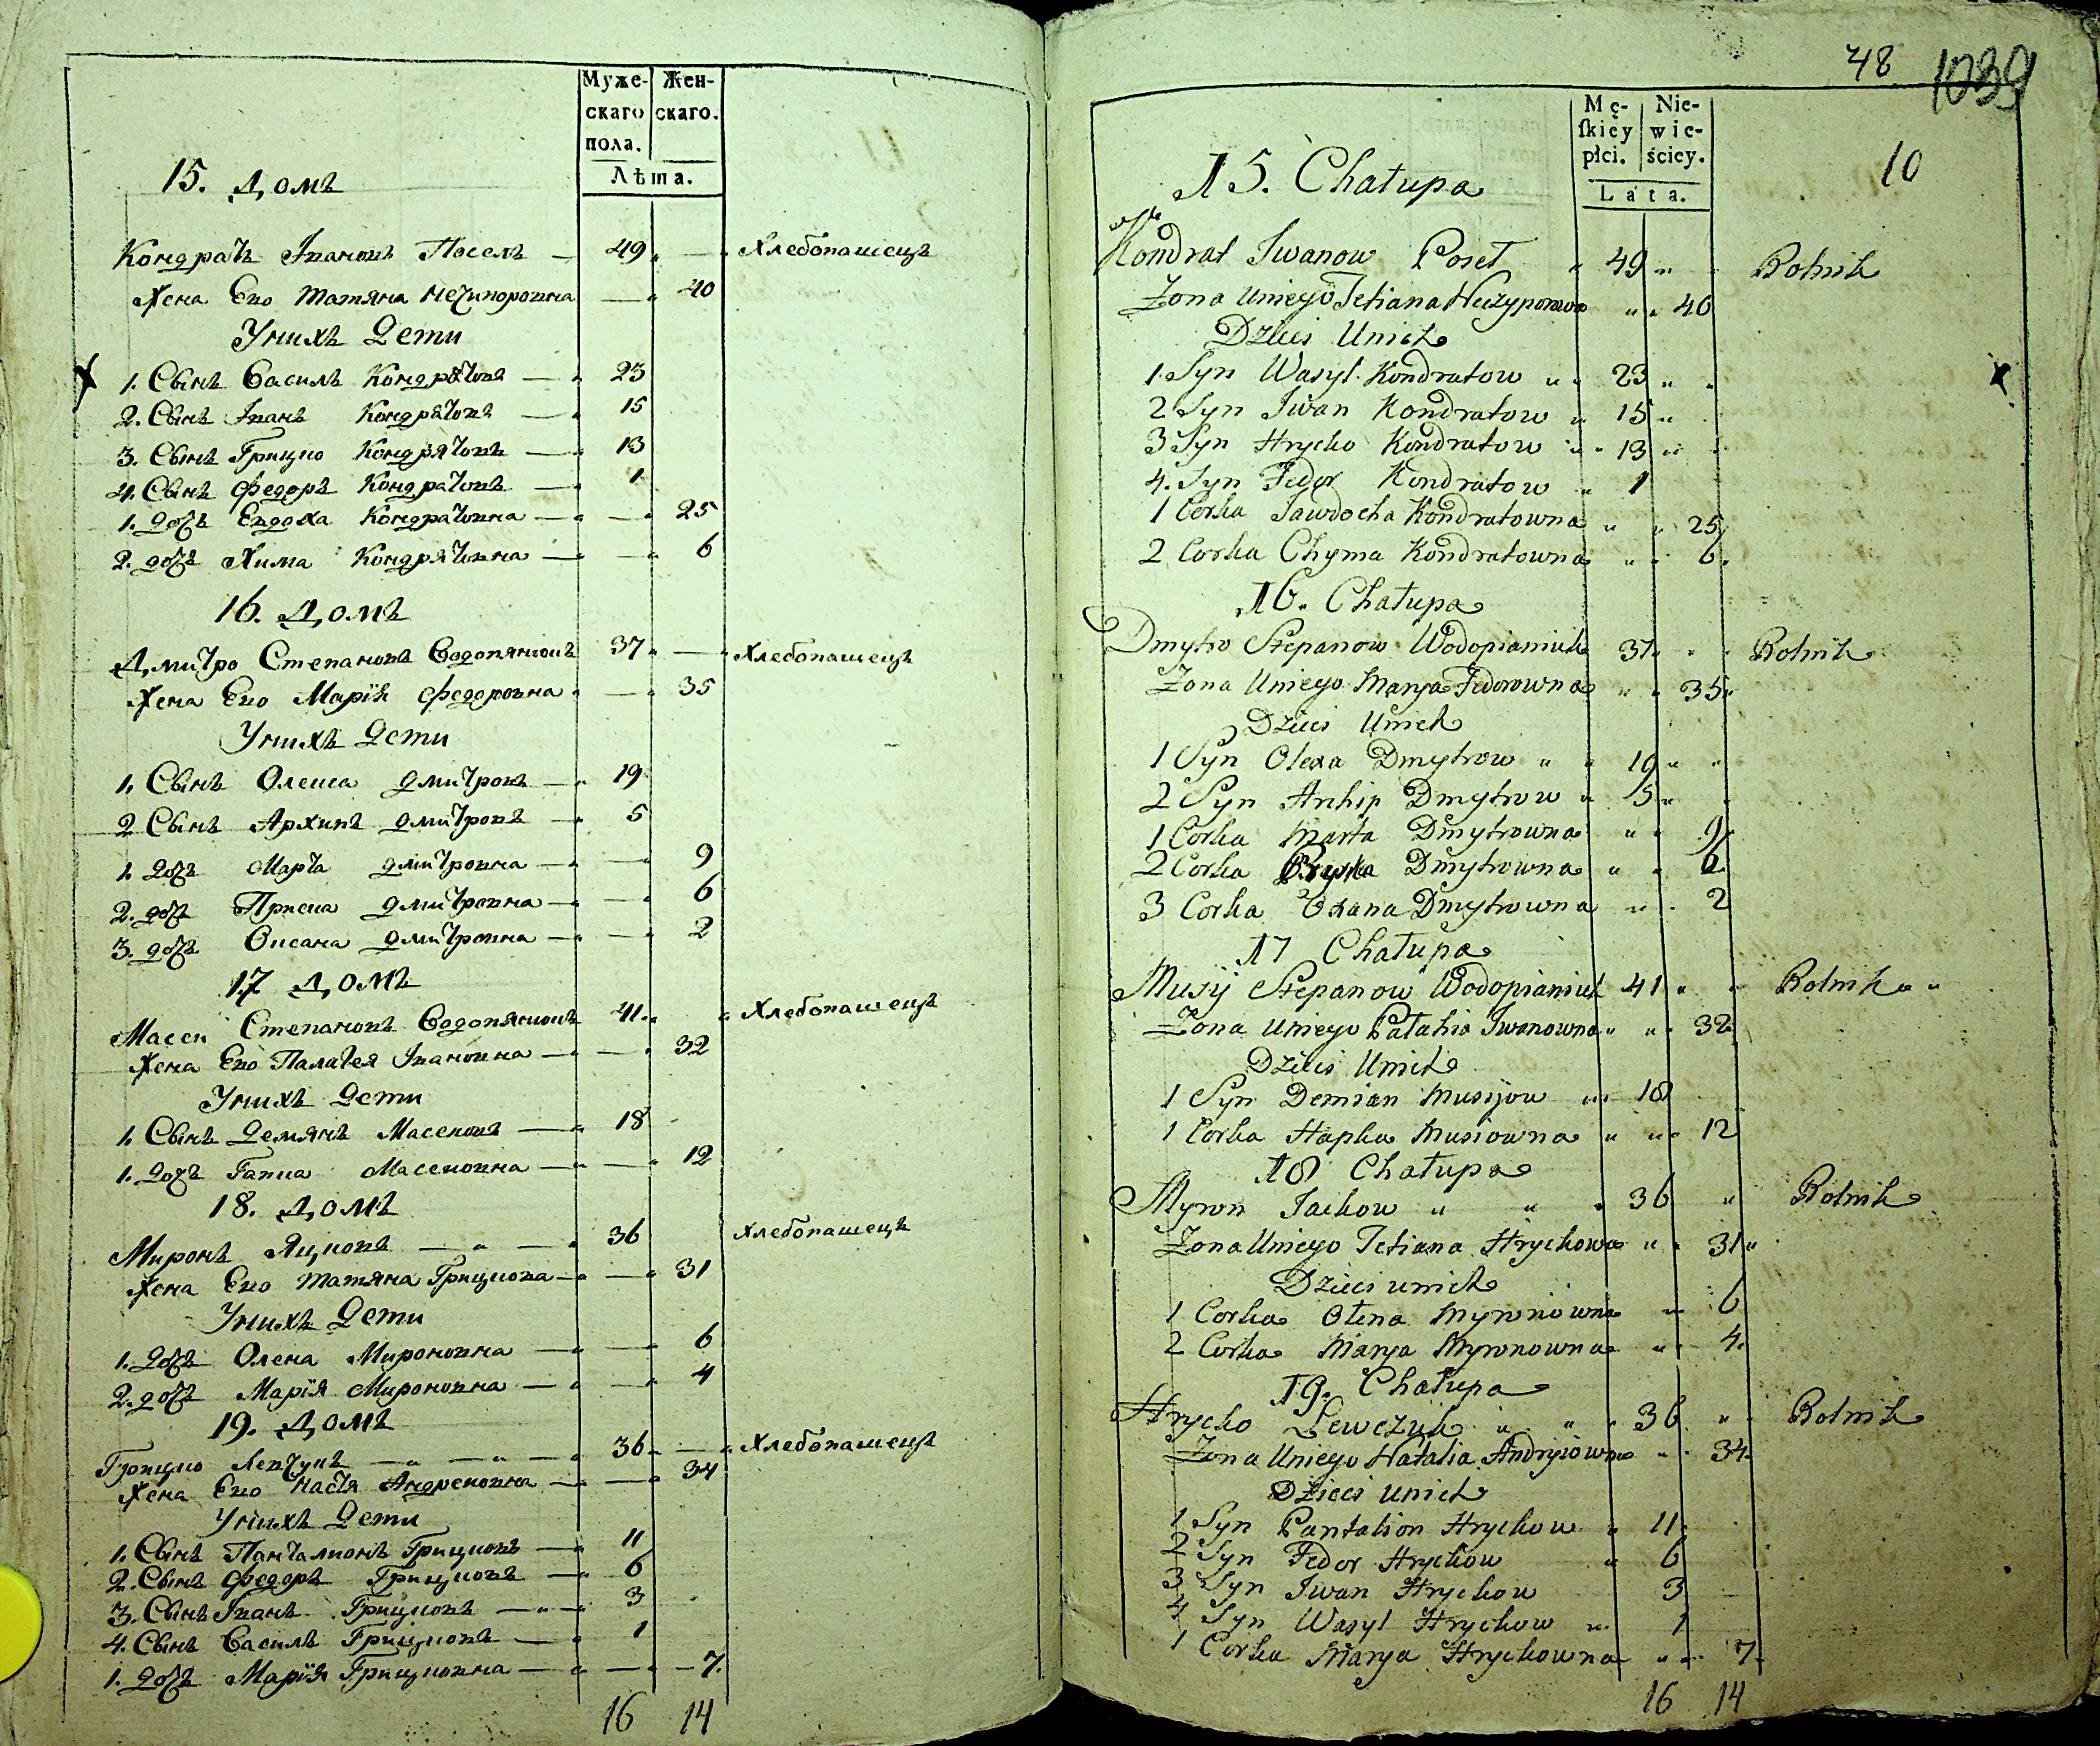 Муже- Жен-
скаго скаго.
пола.
Лѣта.
15. Домъ
Кондратъ Ивановъ Поселъ — 49 — Хлебопашецъ
Жена Его Татяна Нечипоровна — 40
Унихъ Дети
1. Сынъ Василь Кондратовъ — 23
2. Сынъ Иванъ Кондратовъ — 15
3. Сынъ Грицко Кондратовъ — 13
4. Сынъ Федоръ Кондратовъ — 1
1. дочь Евдоха Кондратовна — — 25
2. дочь Хима Кондратовна — — 6
16. Домъ
Дмитро Степановъ Водопянюкъ 37 — Хлебопашецъ
Жена Его Марія Федоровна — 35
Унихъ Дети
1. Сынъ Олекса Дмитровъ — 19
2 Сынъ Архипъ Дмитровъ — 5
1. дочь Марта Дмитровна — — 9
2. дочь Приска Дмитровна — — 6
3. дочь Оксана Дмитровна — — 2
17 Домъ
Масей Степановъ Водопянюкъ 41. Хлебопашецъ
Жена Его Палагея Ивановна — — 32
Унихъ Дети
1. Сынъ Демянъ Масеювъ — 18
1. дочь Гапка Масеювна — — 12
18. Домъ
Миронъ Яцковъ — " — 36 Хлебопашецъ
Жена Его Татяна Грицкова — — 31
Унихъ Дети
1. дочь Олена Мироновна — — 6
2. дочь Марія Мироновна — — 4
19. Домъ
Грицко Левчукъ — " — " — 36 — Хлебопашецъ
Жена Его Настя Андреювна — — 34
Унихъ Дети
1. Сынъ Панталионъ Грицковъ — 11
2. Сынъ Федоръ Грицковъ — 6
3. Сынъ Иванъ Грицковъ — " — 3
4. Сынъ Василь Грицковъ — 1
1. дочь Марія Грицковна — — 7.
16 14
48 1039
Mę- Nie-
skiey wie-
płci. ściey.
Lata.
10
15. Chałupa
Kondrat Iwanow Poseł " 49 " " Rolnik
Zona Uniego Tetiana Neczyporowa " " 40
Dzieci Unich
1. Syn Wasyl Kondratow " " 23 " "
2 Syn Iwan Kondratow " 15 "
3 Syn Hrycko Kondratow " " 13 " "
4. Syn Fedor Kondratow " 1
1 Corka Jawdocha Kondratowna " " 25
2 Corka Chyma Kondratowna " " 6.
16. Chałupa
Dmytro Stepanow Wodopianiuk 37 " " Rolnik
Zona Uniego Marya Fedorowna " " 35
Dzieci Unich
1 Syn Olexa Dmytrow " " 19 " "
2 Syn Arhip Dmytrow " 5 "
1 Corka Marta Dmytrowna " " 9
2 Corka Pryska Dmytrowna " " 6
3 Corka Oxana Dmytrowna " " 2
17 Chałupa
Musij Stepanow Wodopianiuk 41 " " Rolnik " "
Zona Uniego Pałahia Iwanowna " " 32
Dzieci Unich
1 Syn Demian Musijow " " 18
1 Corka Hapka Musiowna " " " 12
18 Chałupa
Myron Jackow " " " 36 " Rolnik
Zona Uniego Tetiana Hryckowa " " 31 "
Dzieci unich
1 Corka Ołena Myronowna " 6
2 Corka Marya Myronowna " " 4.
19. Chałupa
Hrycko Lewczuk " " " 36 " Rolnik
Zona Uniego Natalia Andryiowna " " 34
Dzieci unich
1 Syn Pantalion Hryckow " 11.
2 Syn Fedor Hryckow " 6
3 Syn Iwan Hryckow 3
4 Syn Wasyl Hryckow " 1
1 Corka Marya Hryckowna " " 7.
16 14